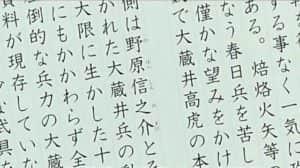 する事なく一気に
ある。焙烙火矢等
なう春日兵を苦し
僅かな望みをかけ
で大蔵井高虎の本
側は野原信之介と
かれた大蔵井兵の
大限に生かした十
にもかかわらず
倒的な兵力の大蔵
資料が現存していな